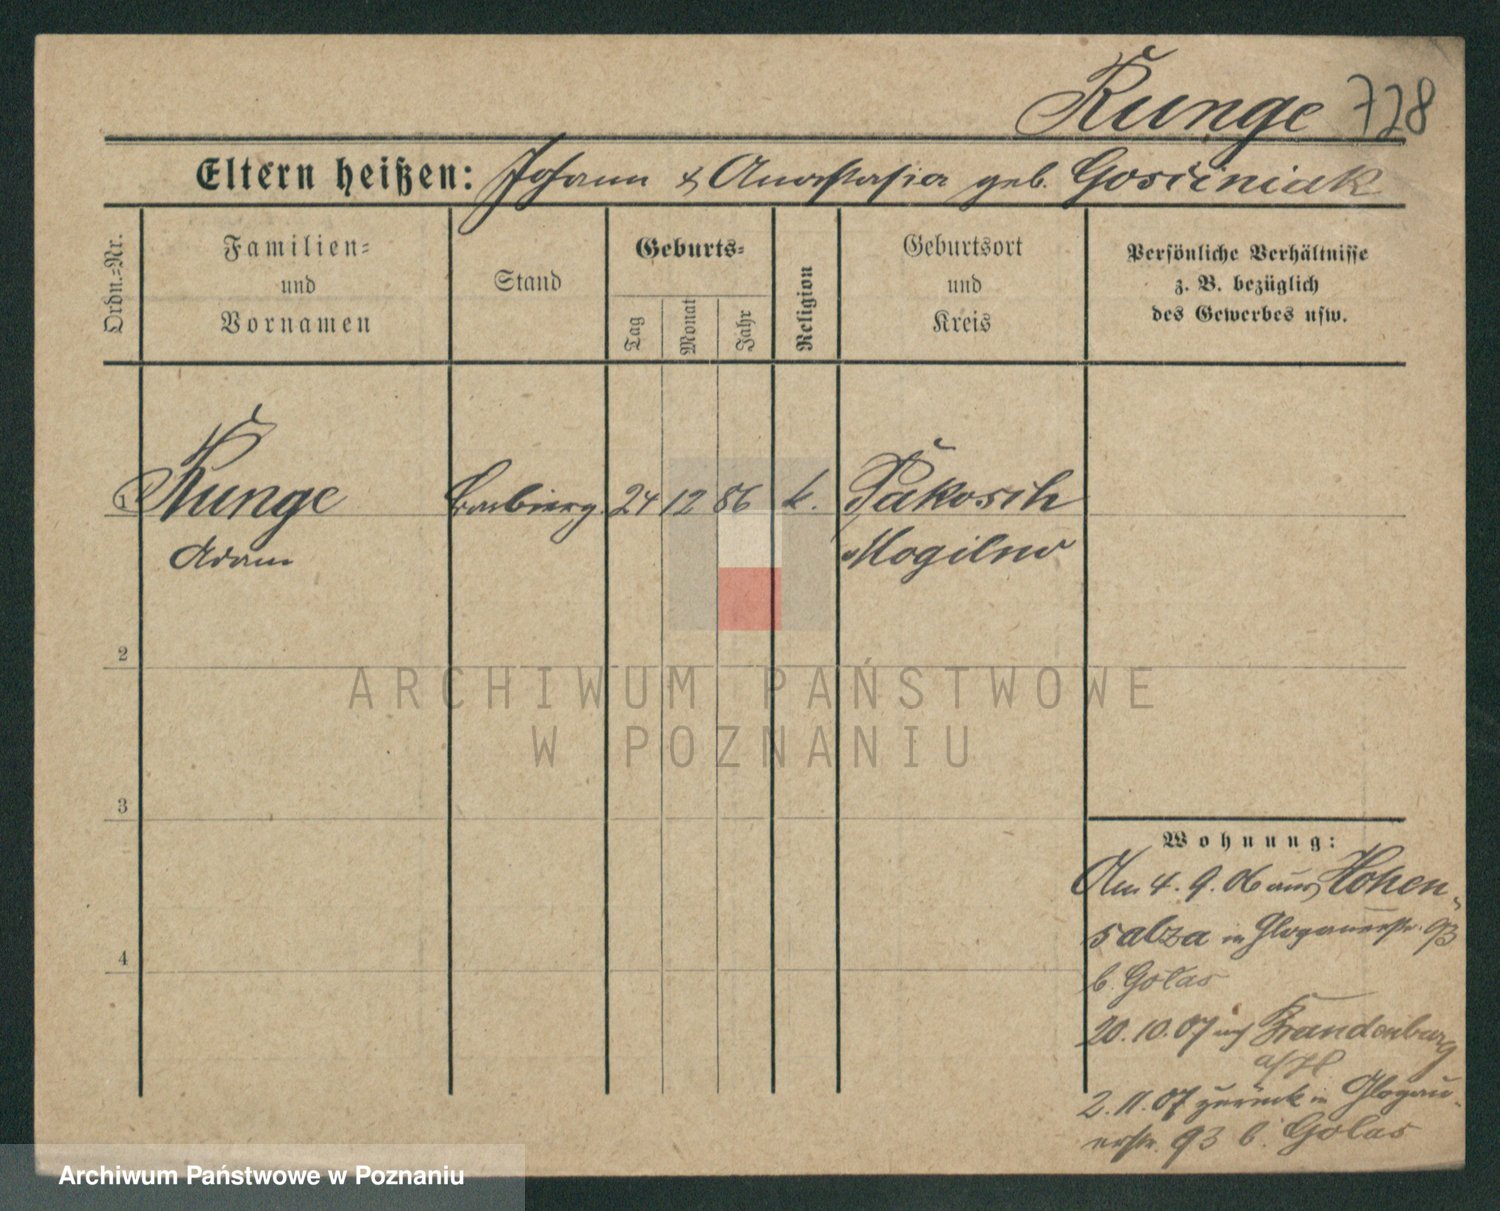 Runge 728
Eltern heißen: Johann & Anastasia geb. Gościniak
Ordn.-Nr.
Familien-
und
Vornamen
Stand
Geburts-
Tag
Monat
Jahr
Religion
Geburtsort
und
Kreis
Persönliche Verhältnisse
z. B. bezüglich
des Gewerbes usw.
1 Runge Barbierg. 24 12 86 k. Pakosch
Adam Mogilno
2
3
4
Wohnung:
Am 4. 9. 06 aus Hohen-
salza in Glogauerstr. 93
b. Golas
20. 10. 07 nach Brandenburg
a/H
2. 11. 07 zurück in Glogau-
erstr. 93 b. Golas
ARCHIWUM PAŃSTWOWE
W POZNANIU
Archiwum Państwowe w Poznaniu